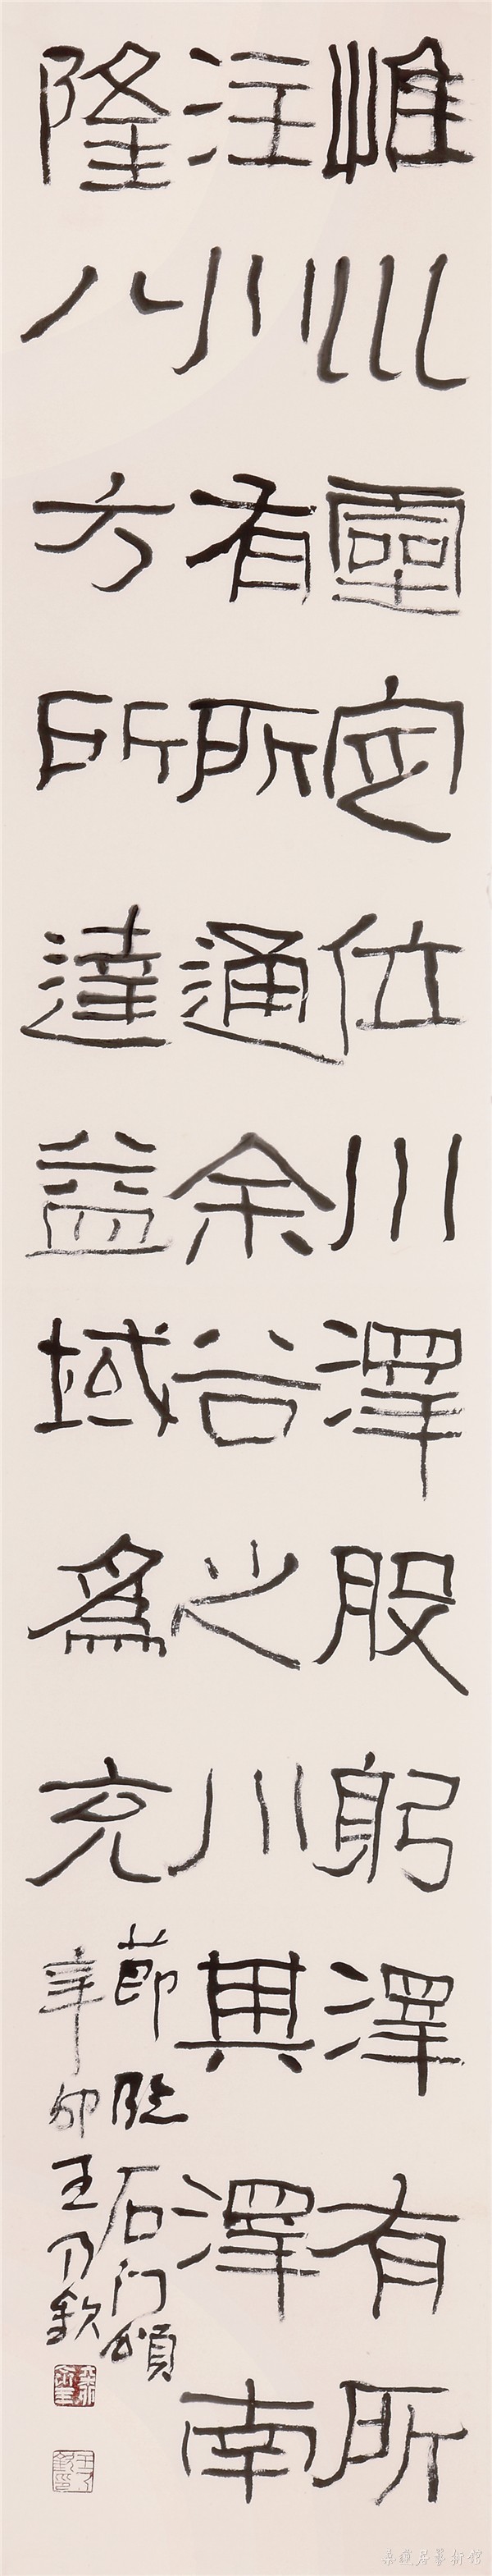 惟巛靈定位川澤股躬澤有所
注川有所通余谷之川其澤南
隆八方所達益域爲充
節臨石门頌
辛卯王乃欽
桑蓮居藝術館